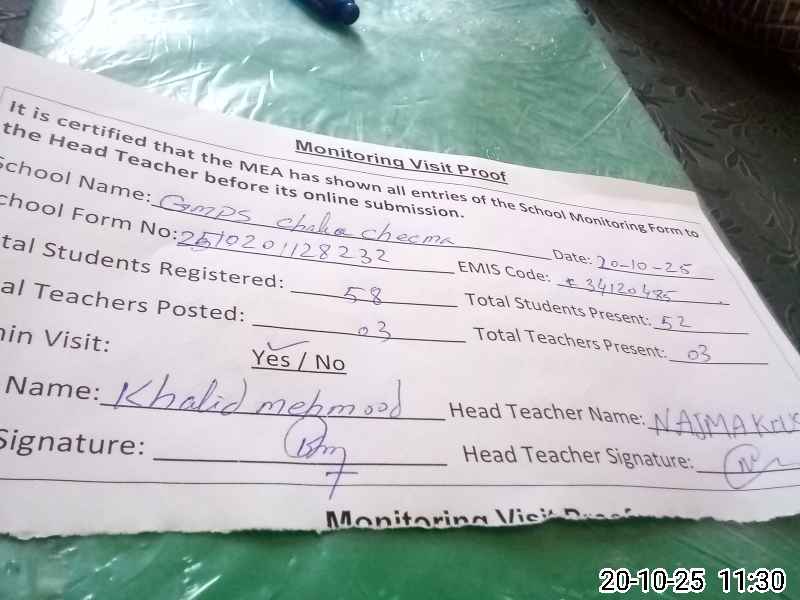 Monitoring Visit Proof
It is certified that the MEA has shown all entries of the School Monitoring Form to
the Head Teacher before its online submission.
School Name: GMPS chaka cheema Date: 20-10-25
chool Form No: 2510201128232 EMIS Code: 34120485
tal Students Registered: 58 Total Students Present: 52
al Teachers Posted: 03 Total Teachers Present: 03
in Visit: Yes / No
Name: Khalid mehmood Head Teacher Name: NAJMA
Signature: Head Teacher Signature:
Monitoring Visit Proof
20-10-25 11:30